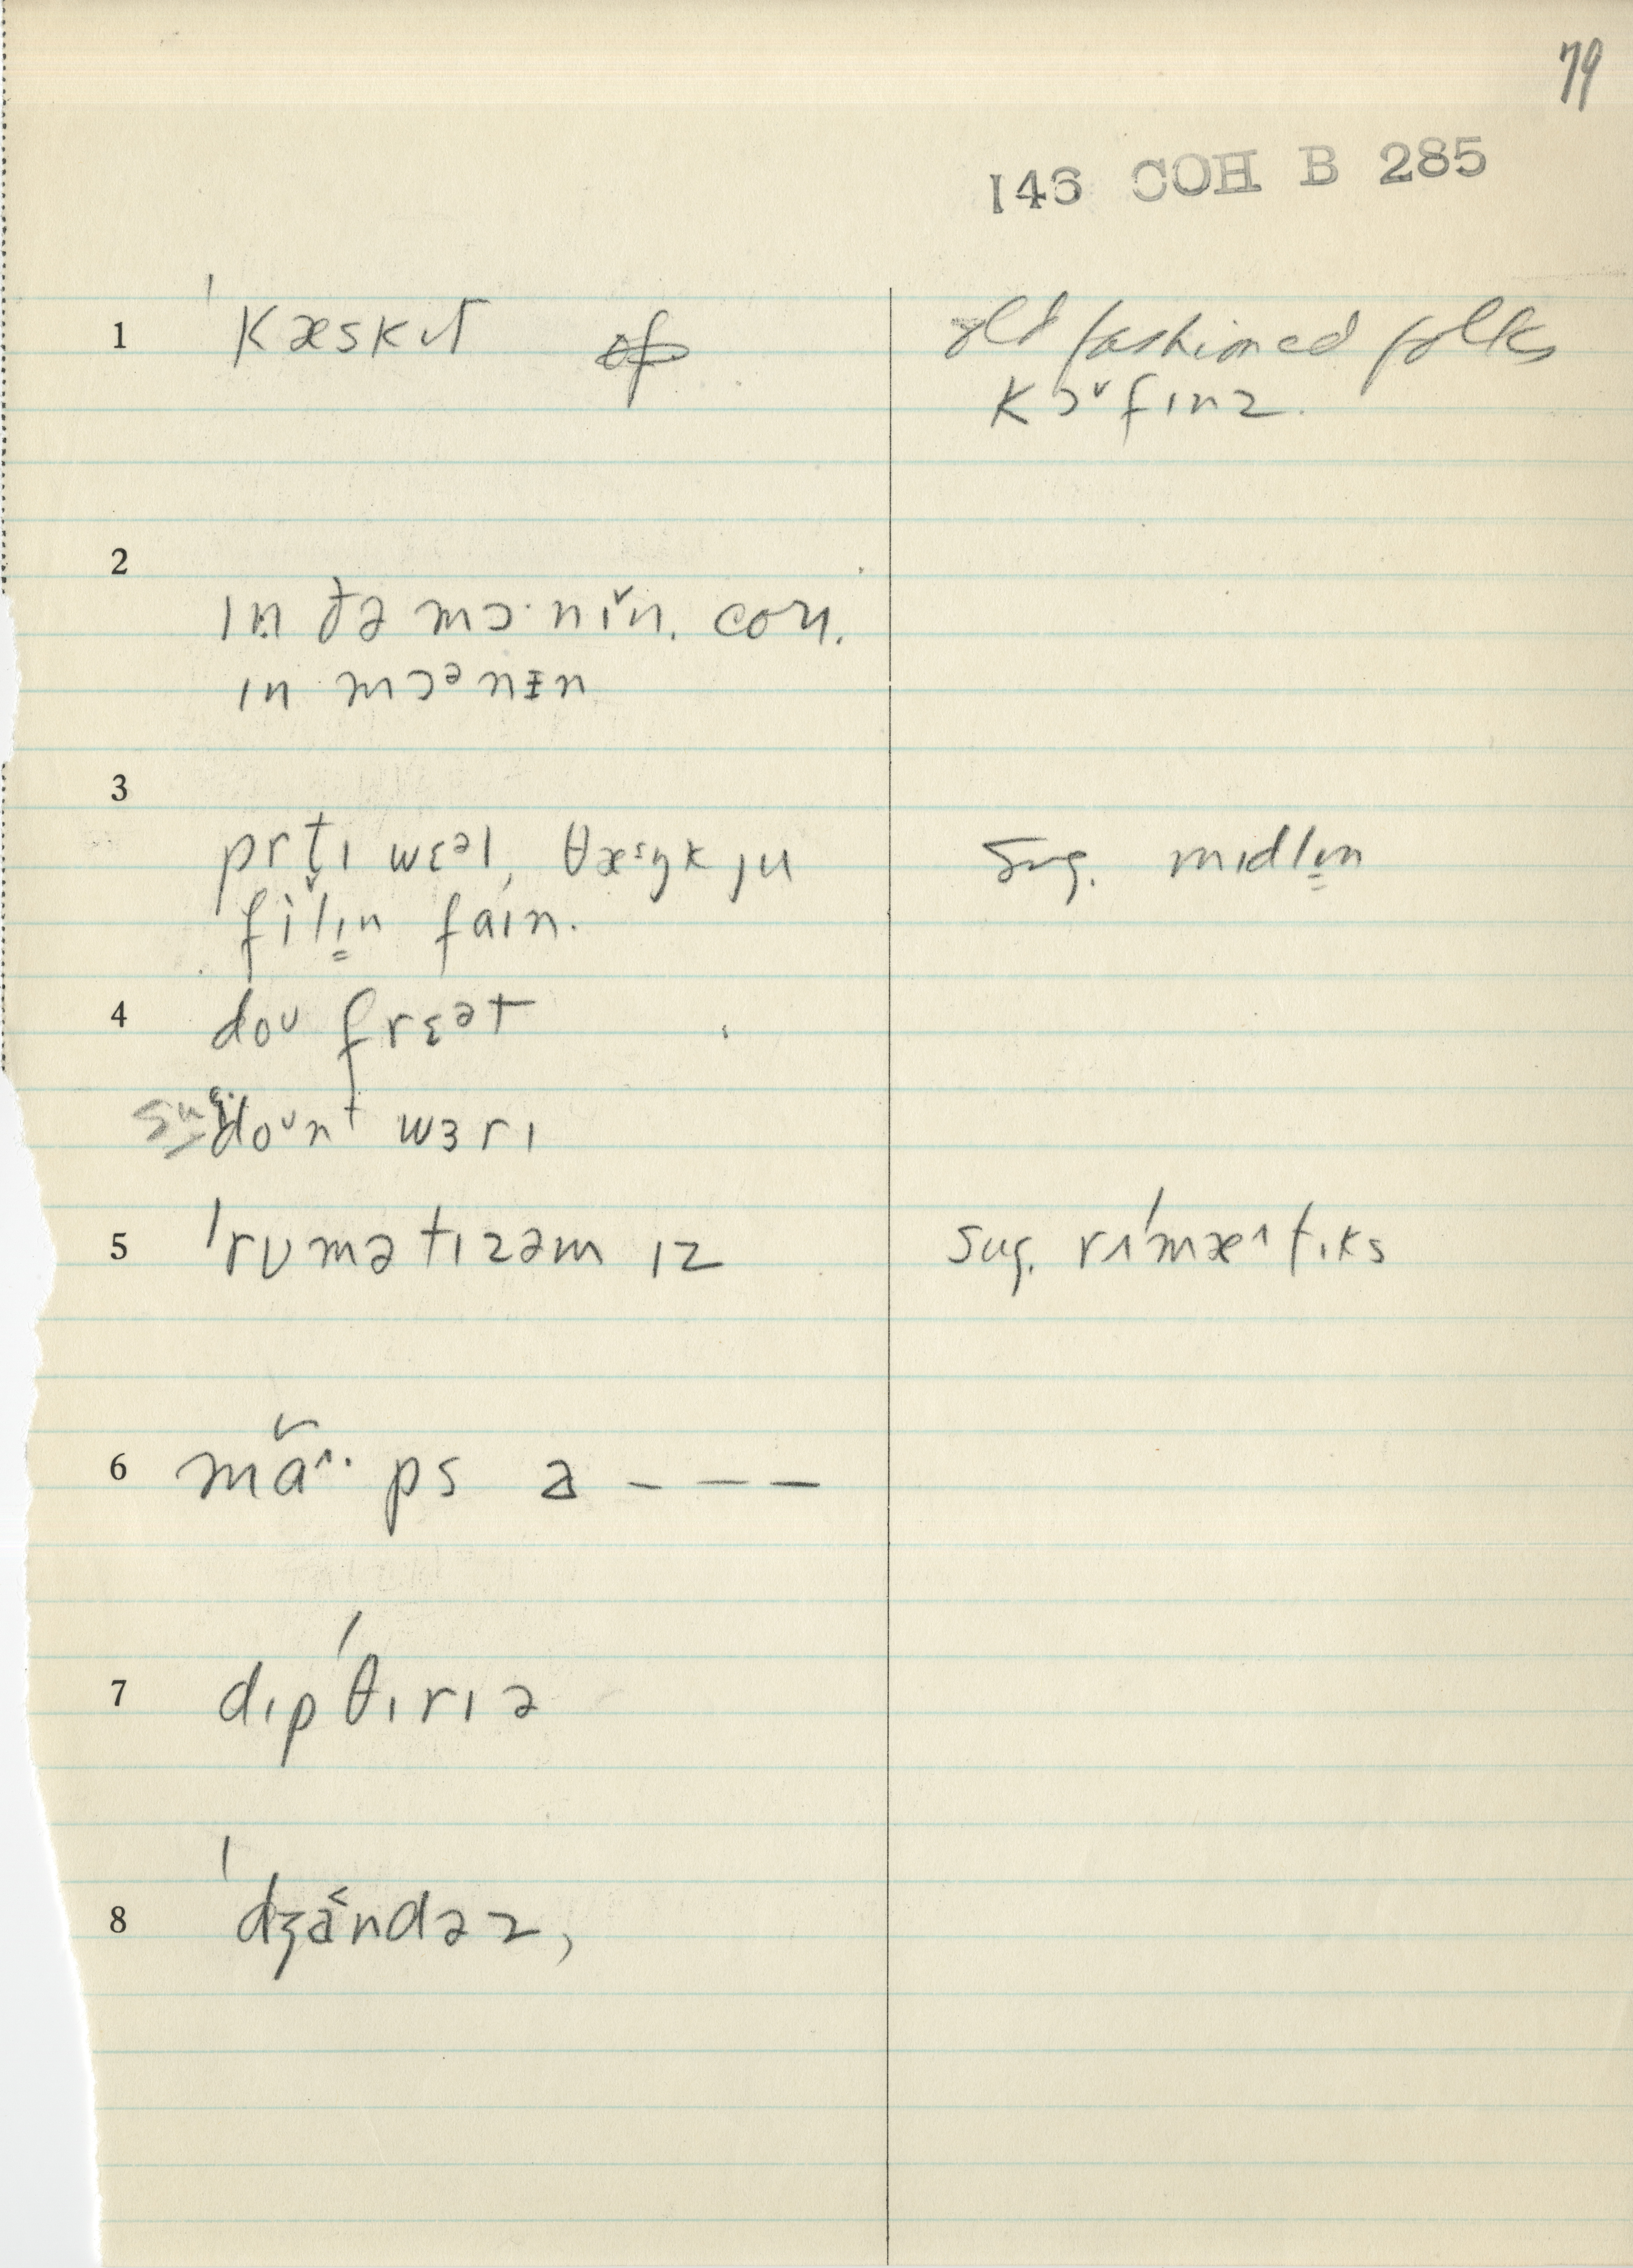 79
146 COH B 285
1 ˈkæskɪt old fashioned folks
kɔ˅fɪnz.
2
ɪn ðə mɔ·nɪ̌n. con.
ɪn mɔᵊnɪn
3
prt̬ɪ wɛᵊl, θæᵋŋk ju Sug. mɪdlɪ̳n
fǐlɪ̳n faɪn.
4 doᴜ frɛᵊt
sug. doᴜnt wɜrɪ
5 ˈrumətɪzəm ɪz Sug. rɪˈmæ^tɪks
6 mɑ̌^· ps a – – –
7 dɪpˈθɪrɪə
8 ˈdʒɑ˂ndəz,